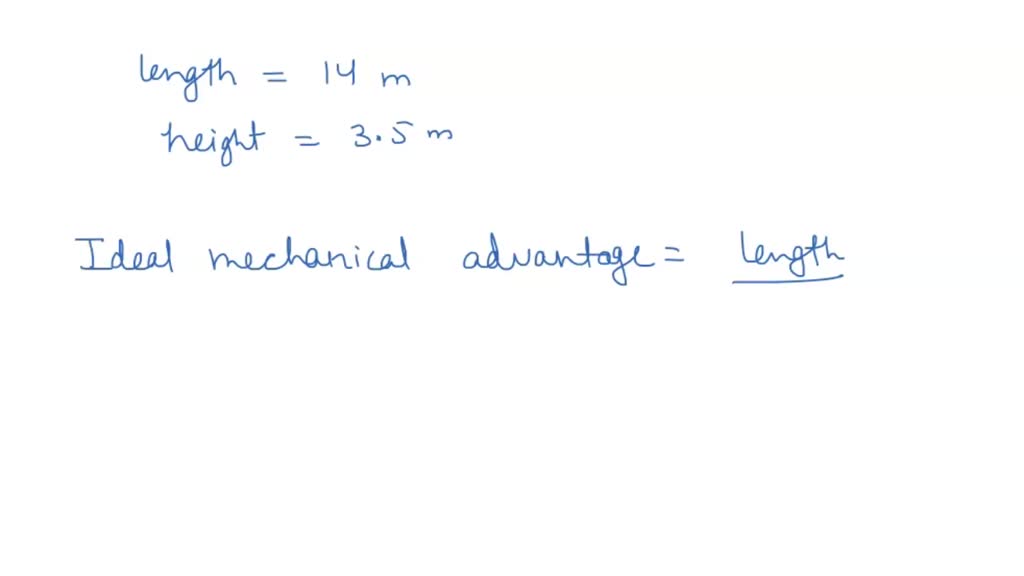 length = 14 m
height = 3.5 m
Ideal mechanical advantage = length